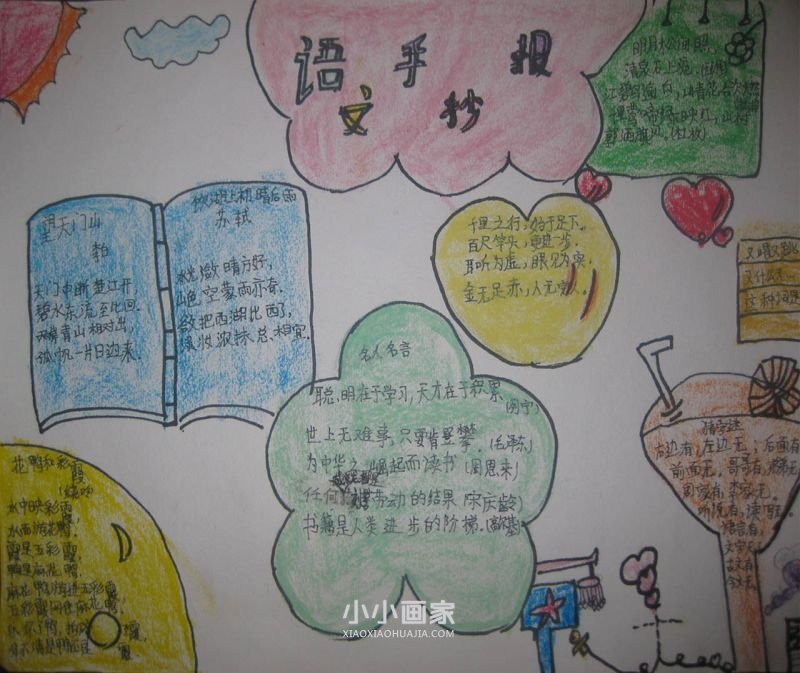 语文手抄报
明月松间照,
清泉石上流。(王维)
望天门山
天门中断楚江开,
碧水东流至此回。
两岸青山相对出,
孤帆一片日边来。
饮湖上初晴后雨
苏轼
水光潋滟晴方好,
山色空蒙雨亦奇。
欲把西湖比西子,
淡妆浓抹总相宜。
千里之行,始于足下。
百尺竿头,更进一步。
耳听为虚,眼见为实。
金无足赤,人无完人。
又唱又跳
又什么
这种词
名人名言
聪明在于学习,天才在于积累。
(列宁)
世上无难事,只要肯登攀。(毛泽东)
为中华之崛起而读书(周恩来)
任何 劳动的结果(宋庆龄)
书籍是人类进步的阶梯。(高尔基)
花鸭和彩霞
(绕口令)
水中映彩霞,
水面游花鸭。
霞是五彩霞,
鸭是麻花鸭。
麻花鸭游进五彩霞,
五彩霞网住麻花鸭。
猜字谜
右边有,左边无;后面有,
前面无。哥哥有,弟弟无。
周家有,李家无。
听说有,
语言有,
小小画家
XIAOXIAOHUAJIA.COM